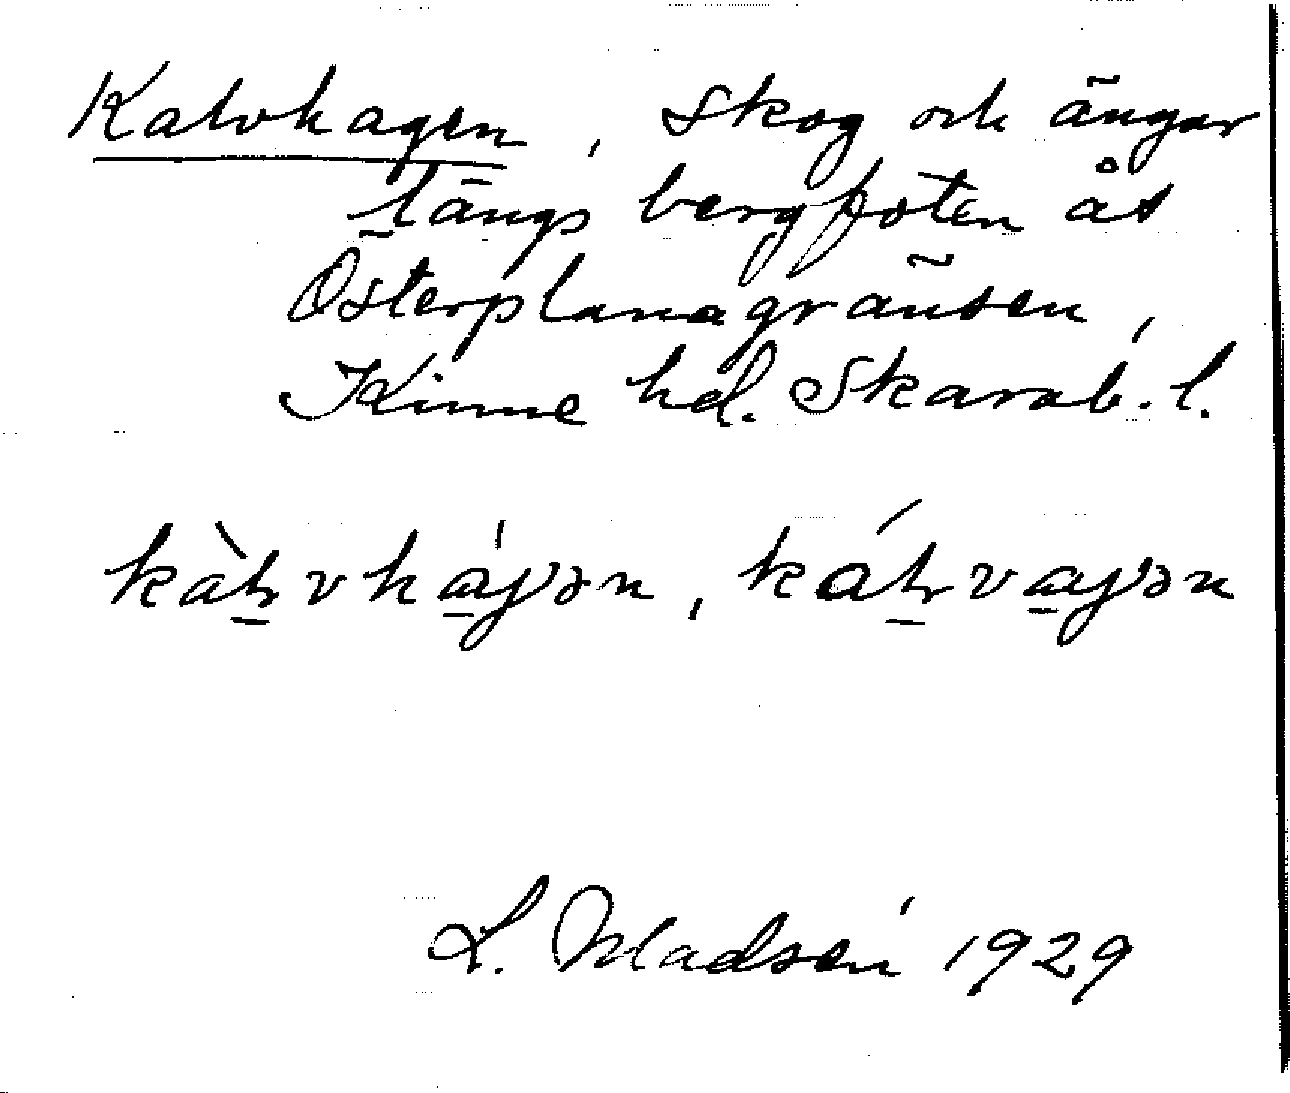 Kalvhagen, skog och ängar
längs bergfoten åt
Österplanagränsen,
Kinne hd. Skarab. l.
L. Madsén 1929